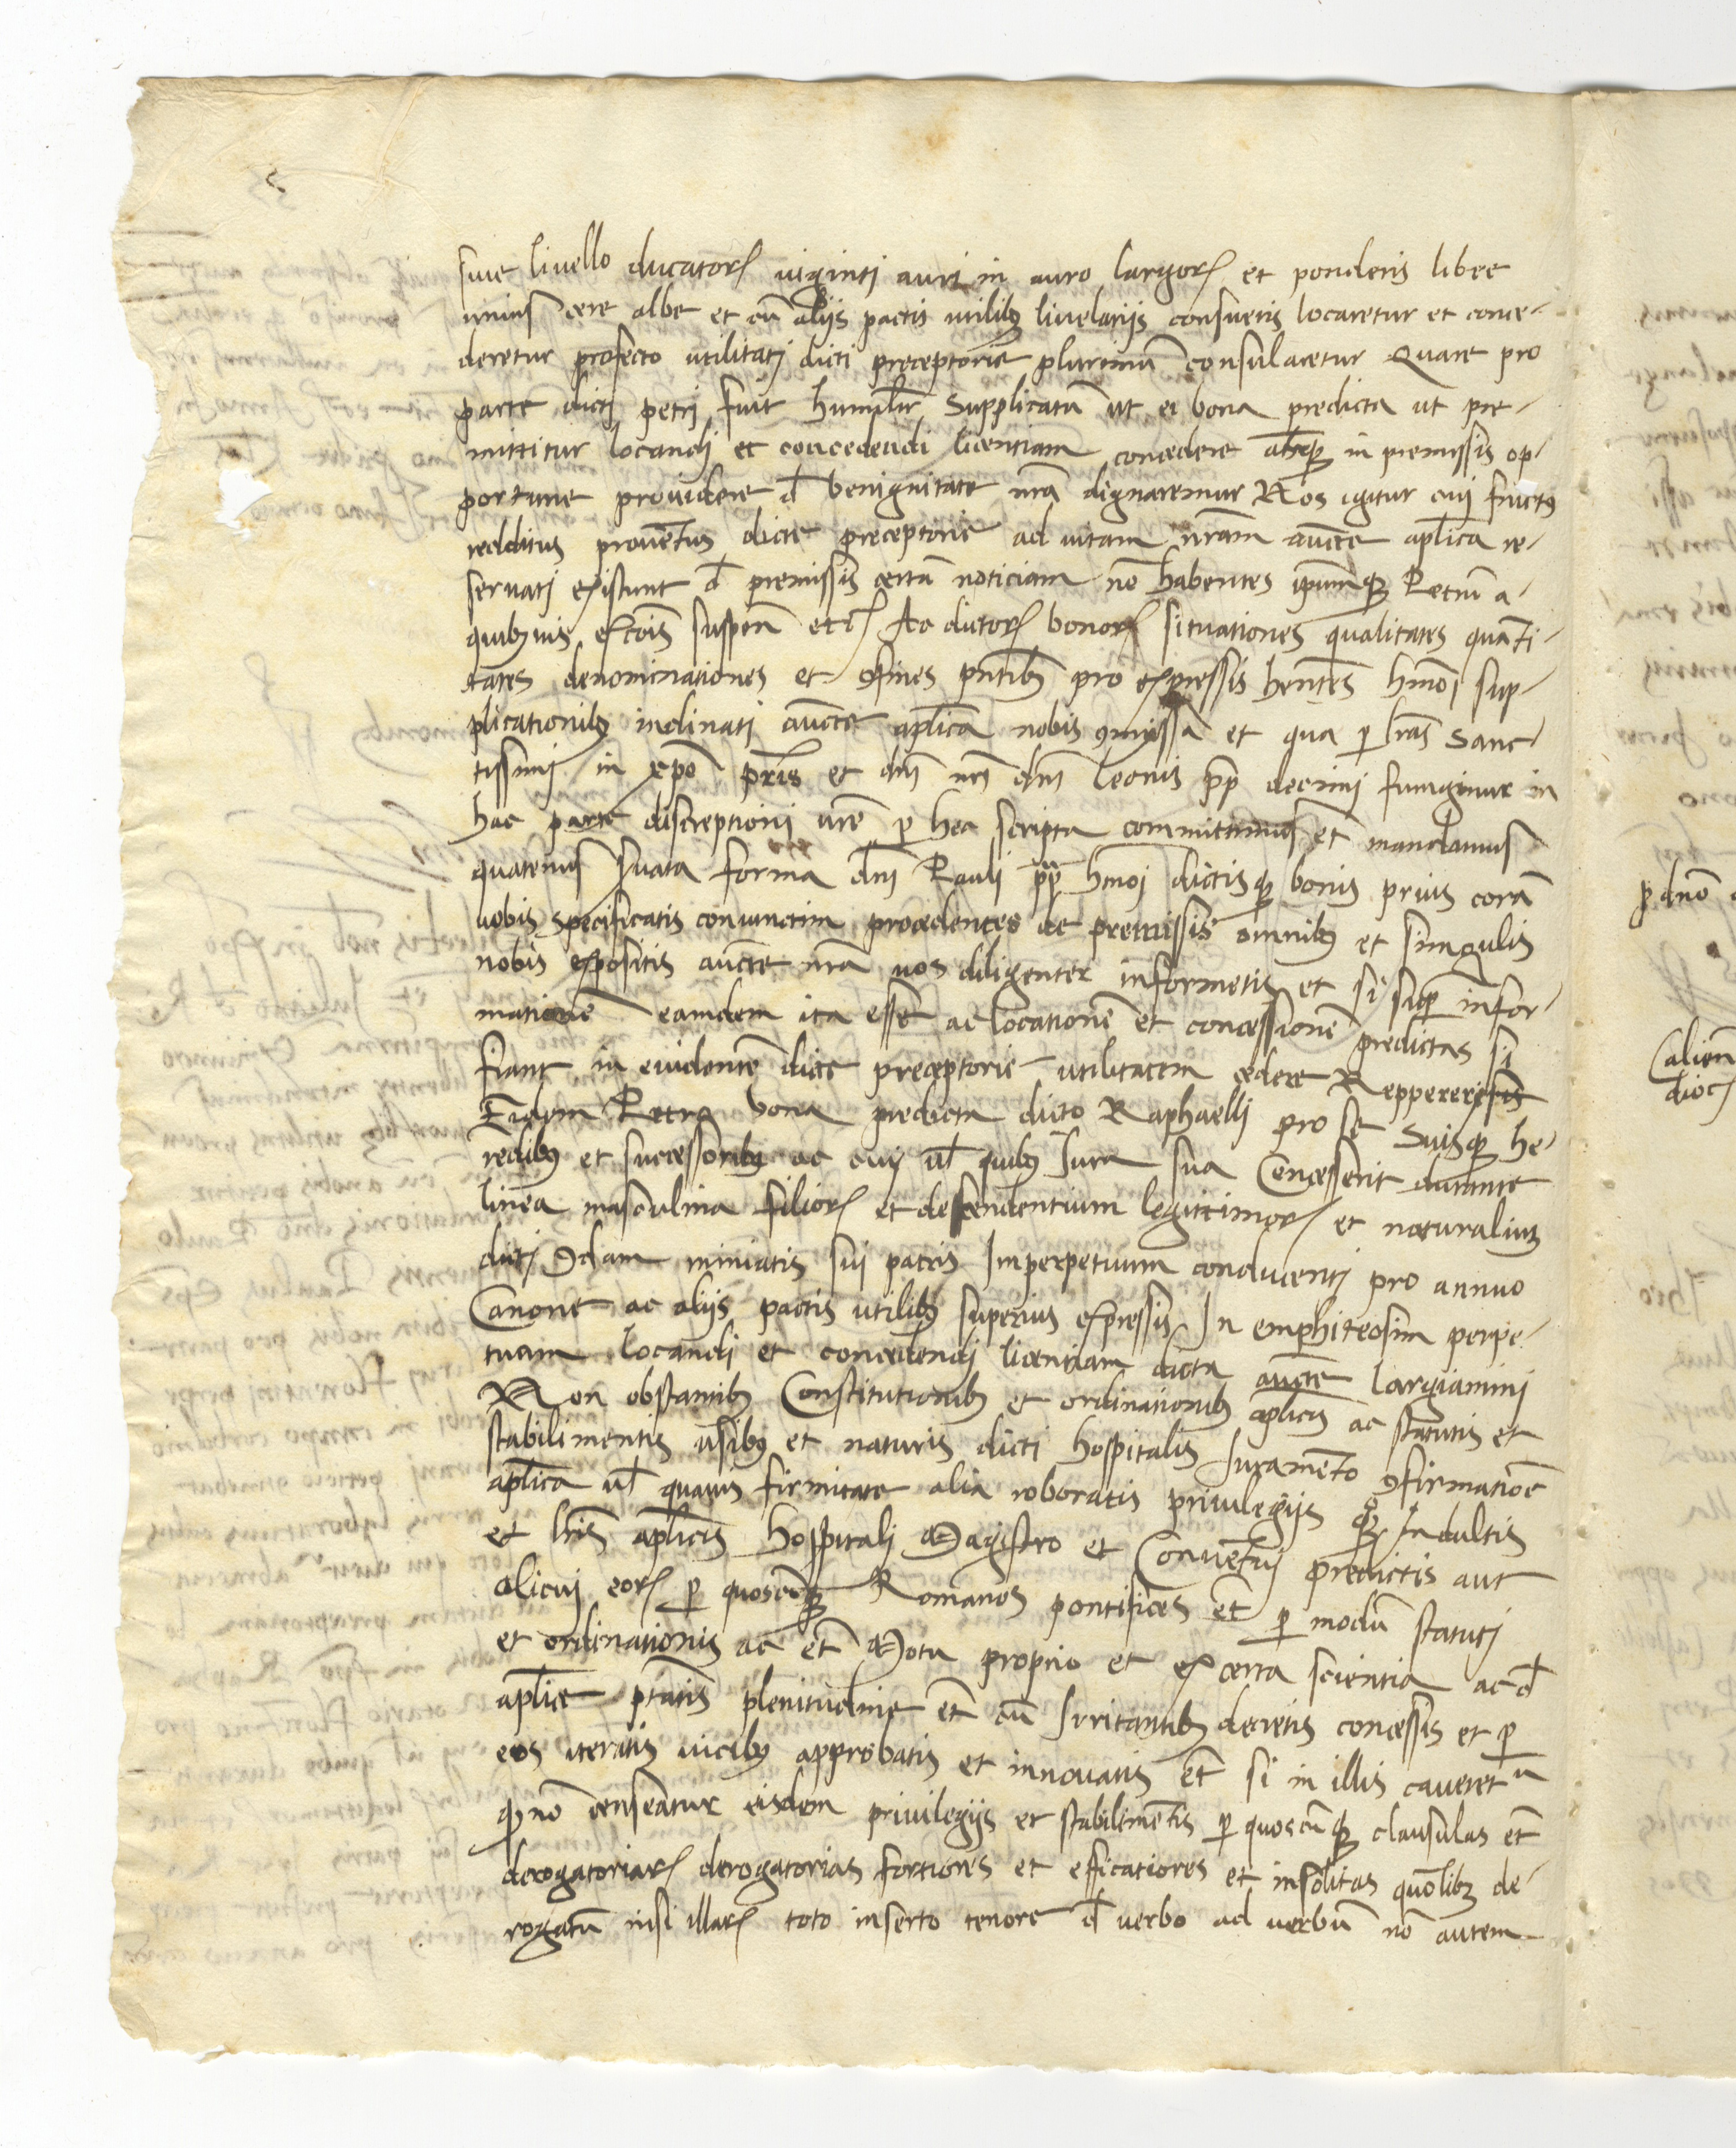 sive livello ducatoꝝ viginti auri in auro largoꝝ et ponderis libre
unius cere albe et cū aliis pactis utilibꝰ livelariis consuetis locaretur et conce-
deretur profecto utilitati dicti preceptorie plurimū consularetur Quare pro
parte dicti petri fuit humilr̄ supplicatū ut ei bona predicta ut pre-
mittitur locandi et concedendi licentiam concedere in premissis op-
portune providere đ benignitate nrā dignaremur Nos igitur cui fructꝰ
redditus proventus dicte preceptorie ad vitam nr̄am auctte aplica re-
servati existunt đ premissis certā noticiam nō habentes ipumqꝫ Petrū a
quibusvis excōis suspen̄ etcꝫ Ac dictoꝝ bonoꝝ situationes qualitates quāti-
tates denominationes et ꝯfines pn̄tibꝰ pro expressis hn̄tes hmōi sup-
plicationibꝰ inclinati auctte aplica nobis ꝯmissa et qua ꝑ lrās Sanc-
tissimi in xp̄o pr̄is et dn̄i nr̄i dn̄i leonis pp̄ decimi fungimur in
hac parte discreptioni vr̄e ꝑ hec scripta committimus et mandamus
quatenus servata forma dn̄i Pauli pp̄ hmōi dictisqꝫ bonis prius corā
vobis specificatis coniunctim procedentes de premissis omnibꝰ et singulis
nobis expositis auctte nrā vos diligenter informetis et si suꝑ infor-
matione eamdem ita esse ac locationē et concessionē predictas si
fiant in evidentē dicte preceptorie utilitatem cedere Reppereritis
Eidem Petro bona predicta dicto Raphaelli pro se suisqꝫ he-
redibꝰ et successoribꝰ ac cui vl̄ quibꝰ Jura sua Concesserit durante
linea masculina filioꝝ et descendentium legittimoꝝ et naturalium
dicti ꝯdam miniatis sui patris Imperpetuum conducenti pro annuo
Canone ac aliis pactis utilibꝰ superius expressis In emphiteosim perpe-
tuam locandi et concedendi licentiam dicta auctte largiamini
Non obstantibꝰ Constitutionibꝰ et ordinationibꝰ aplicis ac statutis et
stabilimentis usibꝰ et naturis dicti hospitalis Juramēto ꝯfirmatiōe
aplica vl̄ quavis firmitate alia roboratis privilegiis qꝫ Indultis
et lris aplicis hospitali Magistro et Conventui predictis aut
alicui eoꝝ ꝑ quoscūqꝫ Romanos pontifices et̄ ꝑ modū statuti
et ordinationis ac et̄ Motu proprio et ex certa scientia ac đ
aplice ptatis plenitudine et̄ cū Irritantibꝰ decretis concessis et ꝑ
eos iteratis vicibꝰ approbatis et innovatis et̄ si in illis caveretu
ꝙ nō censeatur eisdem privilegiis et stabilimētis ꝑ quoscūqꝫ clausulas et̄
derogatoriaꝝ derogatorias fortiores et efficatiores et insolitas quōlibꝫ de-
rogatū nisi illaꝝ toto inserto tenore đ verbo ad verbū nō autem